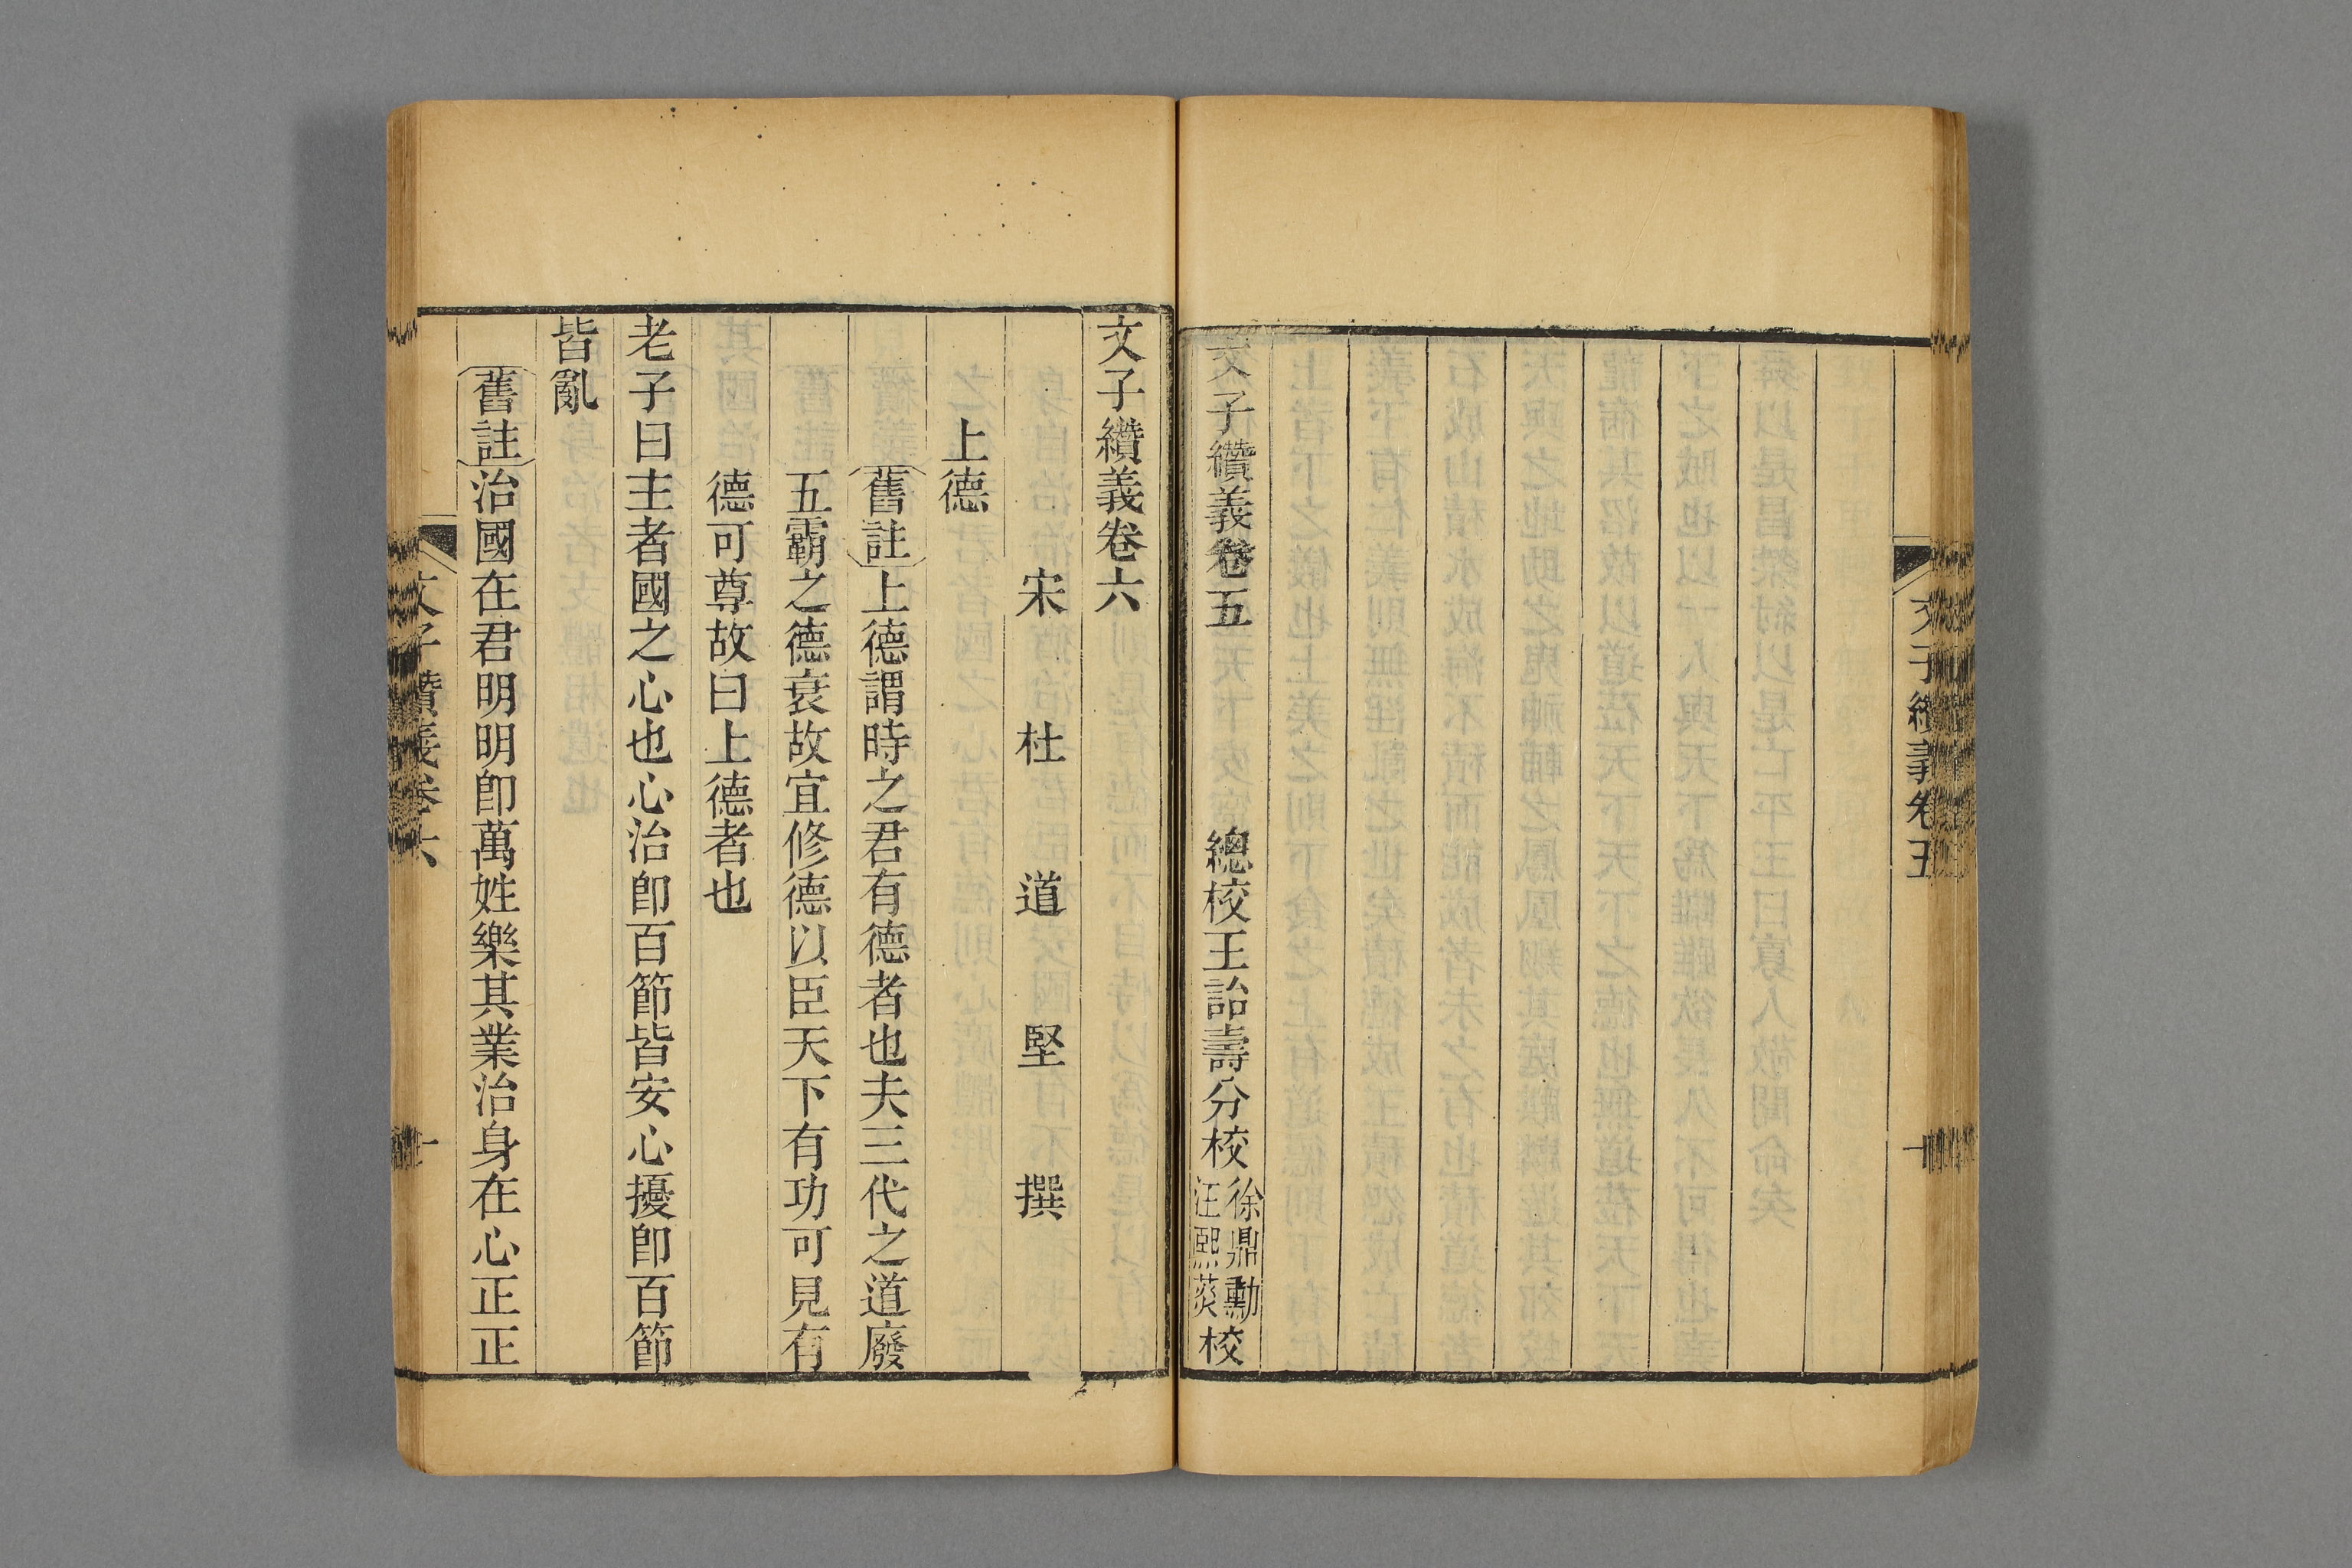 文子纘義卷五
文子纘義卷五 總校王詒壽分校 徐鼎勳 汪熙葵 校
文子纘義卷六
宋 杜 道 堅 撰
上德
舊註上德謂時之君有德者也夫三代之道廢
五霸之德衰故宜修德以臣天下有功可見有
德可尊故曰上德者也
老子曰主者國之心也心治卽百節皆安心擾卽百節
皆亂
舊註治國在君明明卽萬姓樂其業治身在心正正
文子纘義卷六 一